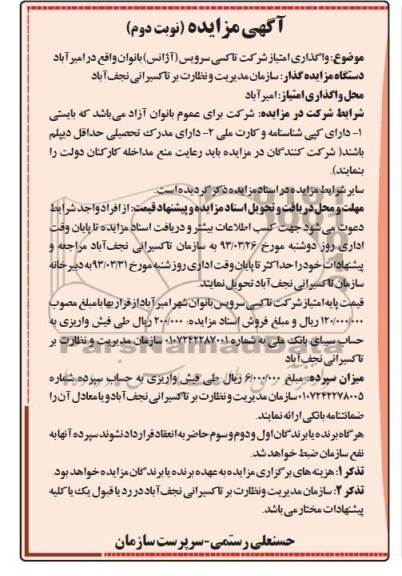 آگهی مزایده (نوبت دوم)
موضوع: واگذاری امتیاز شرکت تاکسی سرویس (آژانس) بانوان واقع در امیرآباد
دستگاه مزایده گذار: سازمان مدیریت و نظارت بر تاکسیرانی نجف‌آباد
محل واگذاری امتیاز: امیرآباد
شرایط شرکت در مزایده: شرکت برای عموم بانوان آزاد می‌باشد که بایستی
۱- دارای کپی شناسنامه و کارت ملی ۲- دارای مدرک تحصیلی حداقل دیپلم
باشند( شرکت کنندگان در مزایده باید رعایت منع مداخله کارکنان دولت را
بنمایند).
سایر شرایط مزایده در اسناد مزایده ذکر گردیده است.
مهلت و محل دریافت و تحویل اسناد مزایده و پیشنهاد قیمت: از افراد واجد شرایط
دعوت می‌شود جهت کسب اطلاعات بیشتر و دریافت اسناد مزایده تا پایان وقت
اداری روز دوشنبه مورخ ۹۳/۰۳/۲۶ به سازمان تاکسیرانی نجف‌آباد مراجعه و
پیشنهادات خود را حداکثر تا پایان وقت اداری روز شنبه مورخ ۹۳/۰۳/۳۱ به دبیرخانه
سازمان تاکسیرانی نجف‌آباد تحویل نمایند.
قیمت پایه امتیاز شرکت تاکسی سرویس بانوان شهر امیرآباد از قرار بها با مبلغ مصوب
۱۲۰/۰۰۰/۰۰۰ ریال و مبلغ فروش اسناد مزایده: ۲۰۰/۰۰۰ ریال طی فیش واریزی به
حساب سیبای بانک ملی به شماره ۰۱۰۷۲۴۲۲۸۷۰۰۱ سازمان مدیریت و نظارت بر
تاکسیرانی نجف‌آباد
میزان سپرده: مبلغ ۶/۰۰۰/۰۰۰ ریال طی فیش واریزی به حساب سپرده شماره
۰۱۰۷۲۴۲۲۷۸۰۰۵ سازمان مدیریت و نظارت بر تاکسیرانی نجف‌آباد و یا معادل آن را
ضمانتنامه بانکی ارائه نمایند.
هرگاه برنده یا برندگان اول و دوم و سوم حاضر به انعقاد قرارداد نشوند سپرده آنها به
نفع سازمان ضبط خواهد شد.
تذکر ۱: هزینه های برگزاری مزایده به عهده برنده یا برندگان مزایده خواهد بود.
تذکر ۲: سازمان مدیریت و نظارت بر تاکسیرانی نجف‌آباد در رد یا قبول یک یا کلیه
پیشنهادات مختار می‌باشد.
حسنعلی رستمی-سرپرست سازمان
ParsNamadData